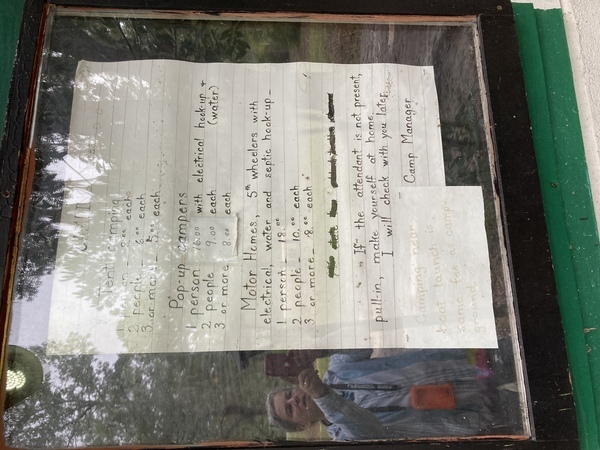 Tent Camping
1 person - 8.00 each
2 people - 6.00 each
3 or more - 5.00 each
Pop-up Campers
1 person 16.00 with electrical hook-up +
2 people 9.00 each (water)
3 or more 8.00 each
Motor Homes, 5th wheelers with
electrical water and septic hook-up -
1 person - 18.00
2 people - 10.00 each
3 or more - 8.00 each
If the attendant is not present,
pull-in, make yourself at home.
I will check with you later.
Camp Manager
Camping near
same fee